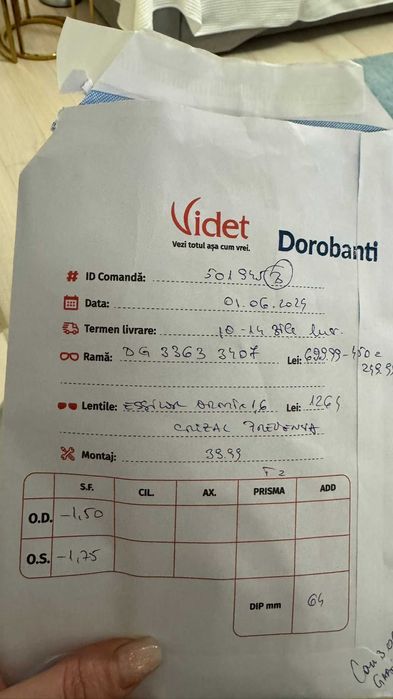 Videt
Vezi totul așa cum vrei.
Dorobanti
ID Comandă: 501945 3
Data: 01.06.2024
Termen livrare: 10-14 zile lur.
Ramă: DG 3363 3407 Lei: 699.99-450=
249.99
Lentile: ESSILOR ORMIX 1,6 Lei: 1264
CRIZAL PREVENCIA
Montaj: 39.99
S.F. CIL. AX. PRISMA ADD
O.D. -1,50
O.S. -1,75
DIP mm 64